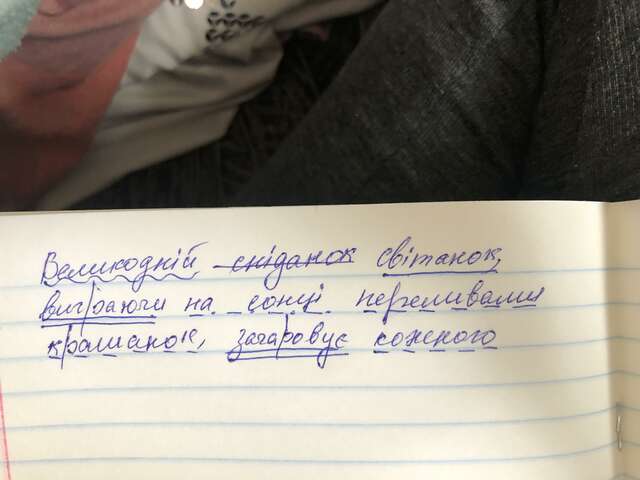 Великодній сніданок світанок,
виграючи на сонці переливами
крашанок, зачаровує кожного